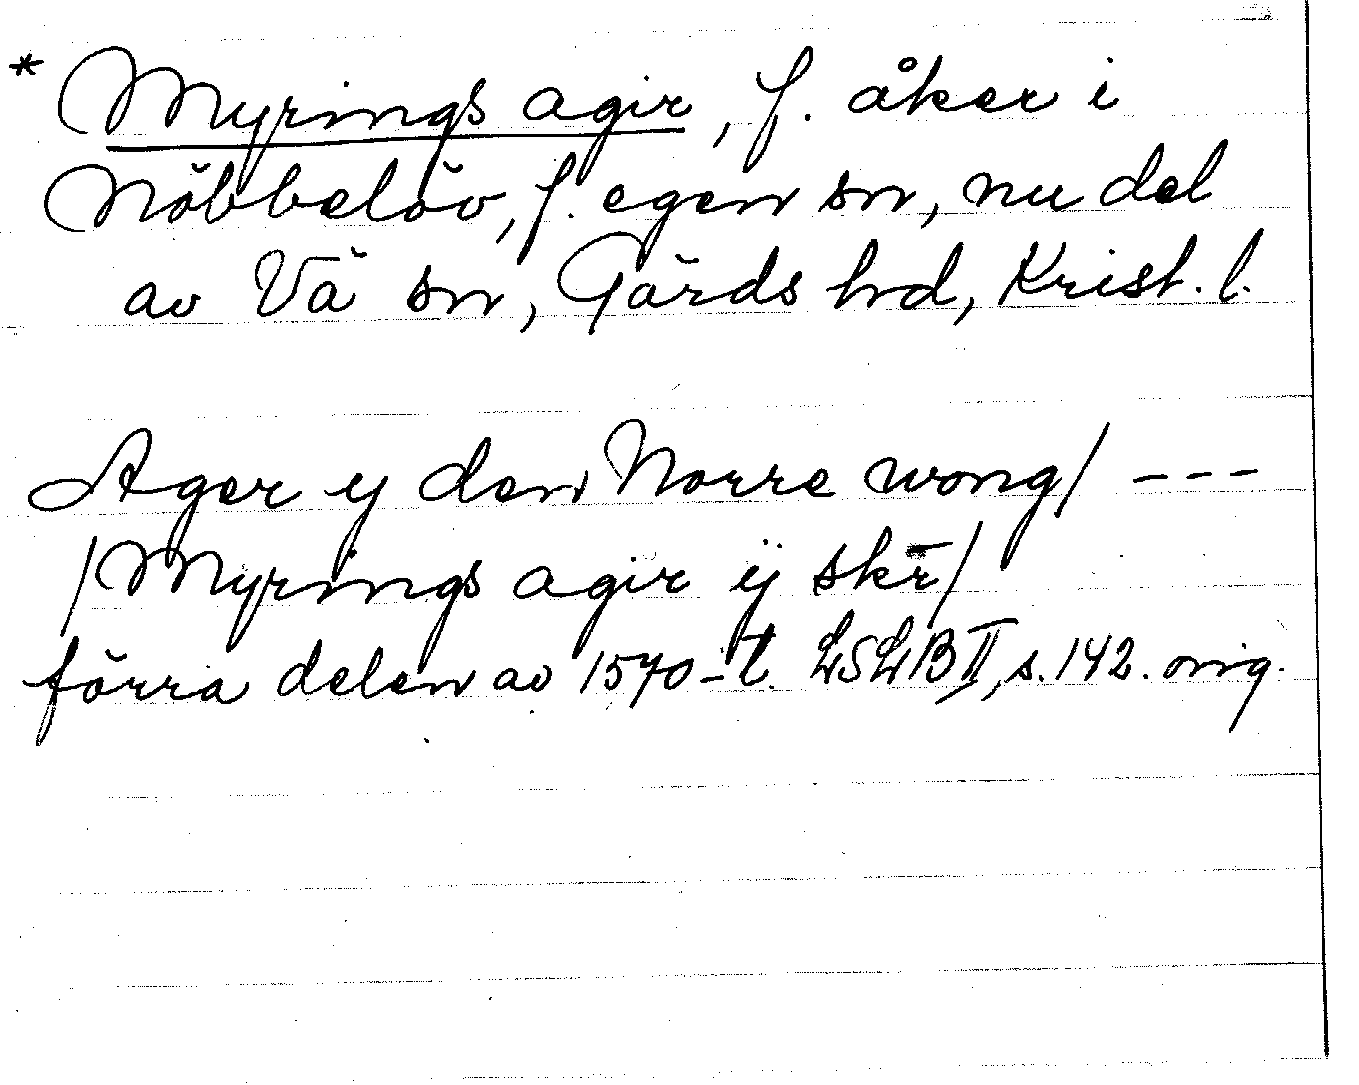 * Myrings agir, f. åker i
Nöbbelöv, f. egen sn, nu del
av Vä sn, Gärds hd, Krist. l.
Ager y den Norre wong/ ---
/Myrings agir ÿ skr̄/
förra delen av 1570-t. LSLB II, s. 142. orig.